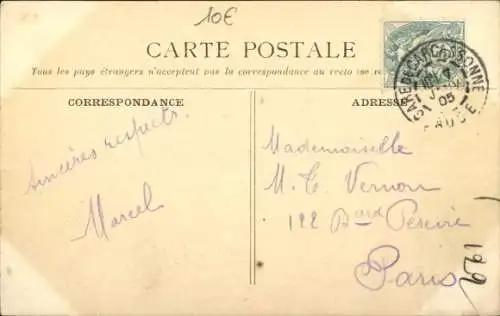 10€
CARTE POSTALE
Tous les pays étrangers n'acceptent pas la correspondance au recto (se re
CORRESPONDANCE
ADRESSE
GARE DE CARCASSONNE
05
AUDE
Sincères respects.
Marcel
Mademoiselle
M. T. Vernon
122 Bard Pereire
Paris
199